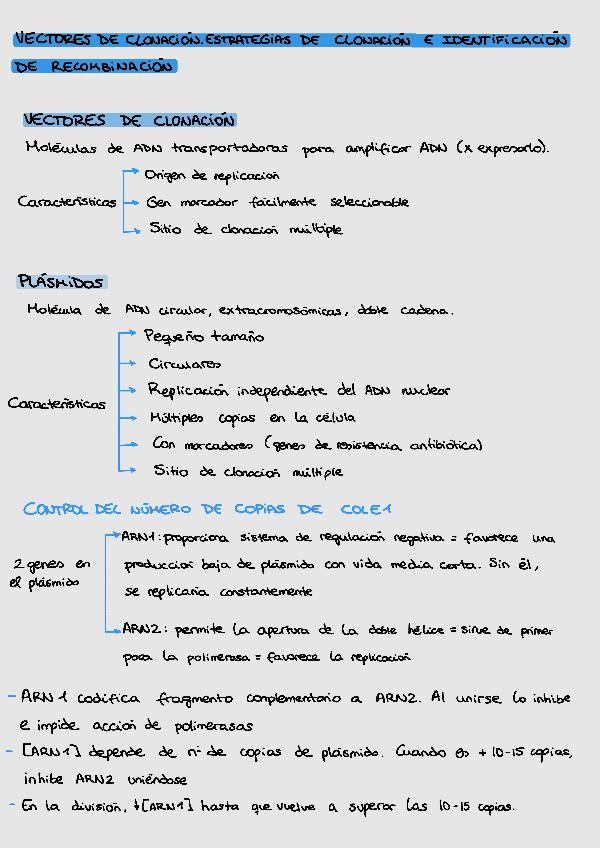 VECTORES DE CLONACIÓN. ESTRATEGIAS DE CLONACIÓN E IDENTIFICACIÓN
DE RECOMBINACIÓN
VECTORES DE CLONACIÓN
Moléculas de ADN transportadoras para amplificar ADN (x expresarlo).
Características
Origen de replicación
Gen marcador fácilmente seleccionable
Sitio de clonación múltiple
PLÁSMIDOS
Molécula de ADN circular, extracromosómicas, doble cadena.
Características
Pequeño tamaño
Circulares
Replicación independiente del ADN nuclear
Múltiples copias en la célula
Con marcadores (genes de resistencia antibiótica)
Sitio de clonación múltiple
CONTROL DEL NÚMERO DE COPIAS DE COLE1
2 genes en
el plásmido
ARN1: proporciona sistema de regulación negativa = favorece una
producción baja de plásmido con vida media corta. Sin él,
se replicaría constantemente
ARN2: permite la apertura de la doble hélice = sirve de primer
para la polimerasa = favorece la replicación
- ARN1 codifica fragmento complementario a ARN2. Al unirse lo inhibe
e impide acción de polimerasas
- [ARN1] depende de nº de copias de plásmido. Cuando es + 10-15 copias,
inhibe ARN2 uniéndose
- En la división, ↓[ARN1] hasta que vuelve a superar las 10-15 copias.